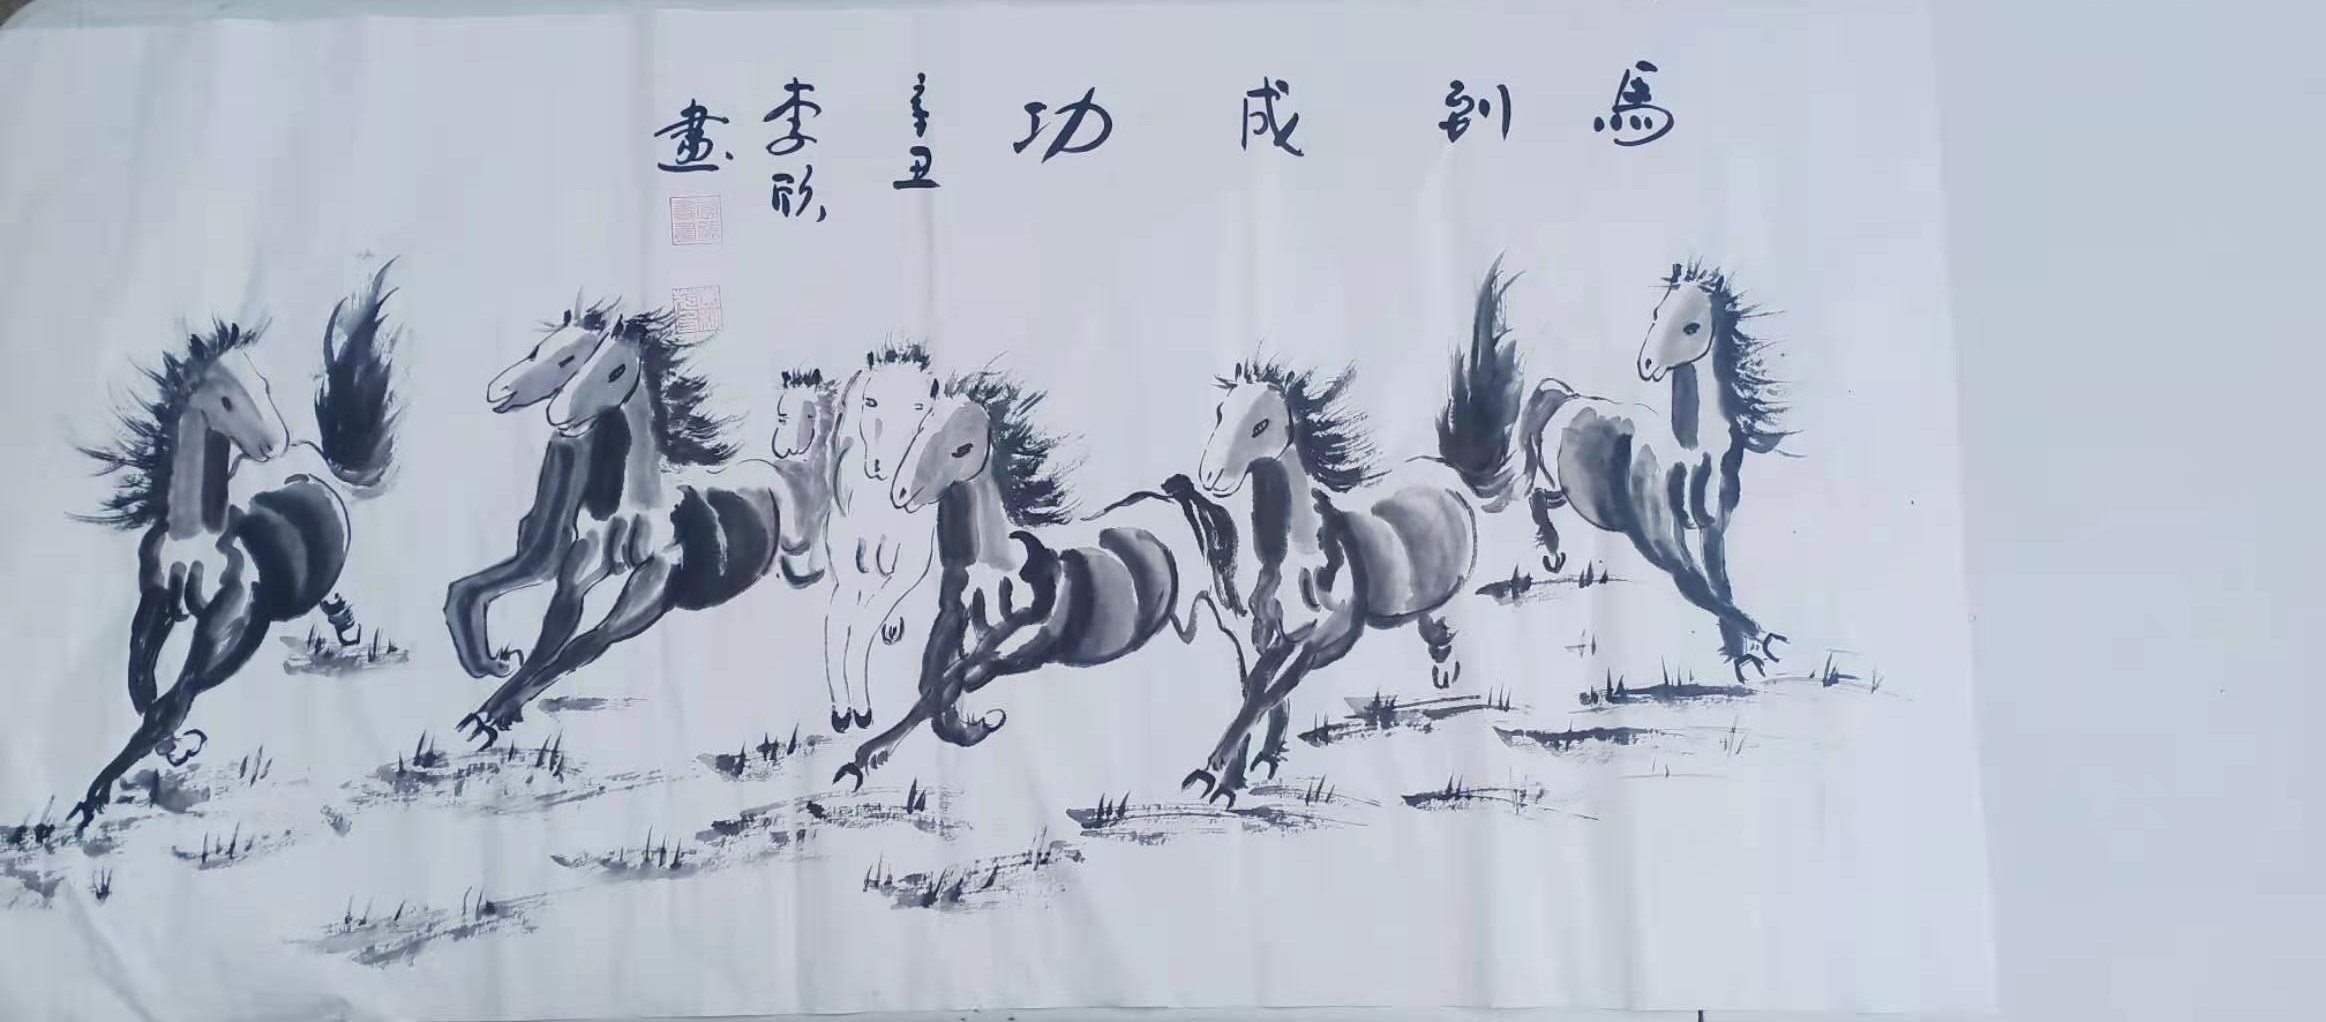 馬到成功
辛丑
李欣
畫